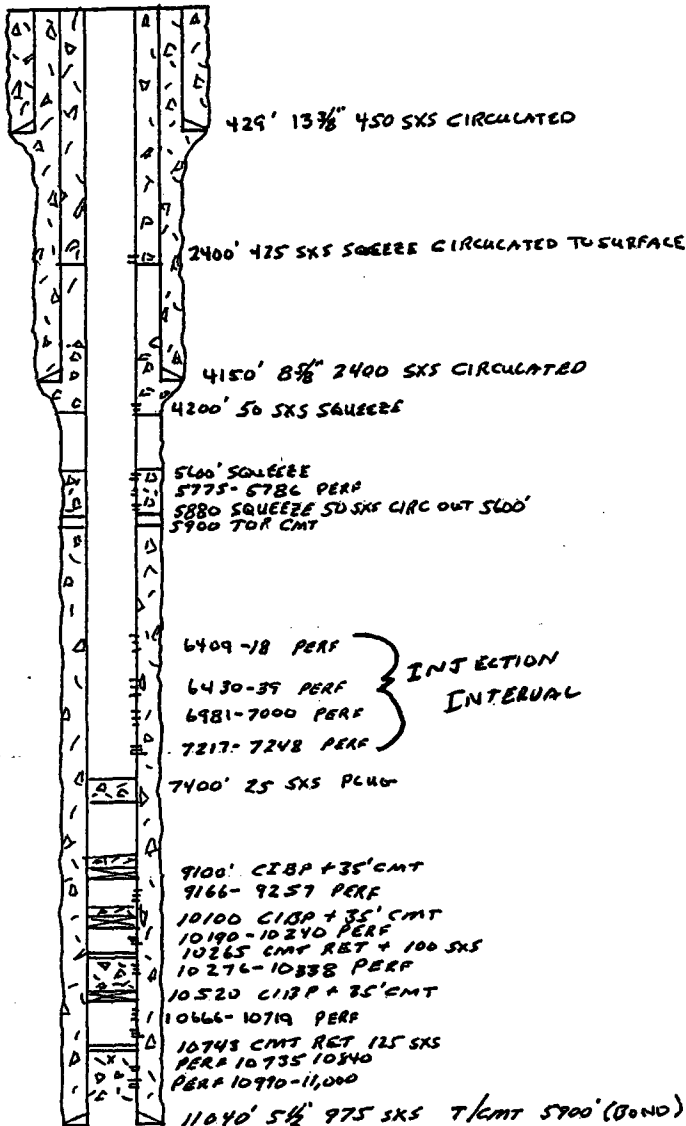 429' 13 3/8" 450 SXS CIRCULATED
2400' 425 SXS SQUEEZE CIRCULATED TO SURFACE
4150' 8 5/8" 2400 SXS CIRCULATED
4200' 50 SXS SQUEEZE
5600' SQUEEZE
5775-5786 PERF
5880 SQUEEZE 50 SXS CIRC OUT 5600'
5900 TOP CMT
6409-18 PERF
6430-39 PERF
6981-7000 PERF
7217-7248 PERF
INJECTION
INTERVAL
7400' 25 SXS PLUG
9100' CIBP + 35' CMT
9166-9257 PERF
10100 CIBP + 35' CMT
10190-10240 PERF
10265 CMT RET + 100 SXS
10276-10338 PERF
10520 CIBP + 35' CMT
10666-10719 PERF
10743 CMT RET 125 SXS
PERF 10735 10840
PERF 10990-11,000
11040' 5 1/2" 975 SXS T/CMT 5900' (BOND)